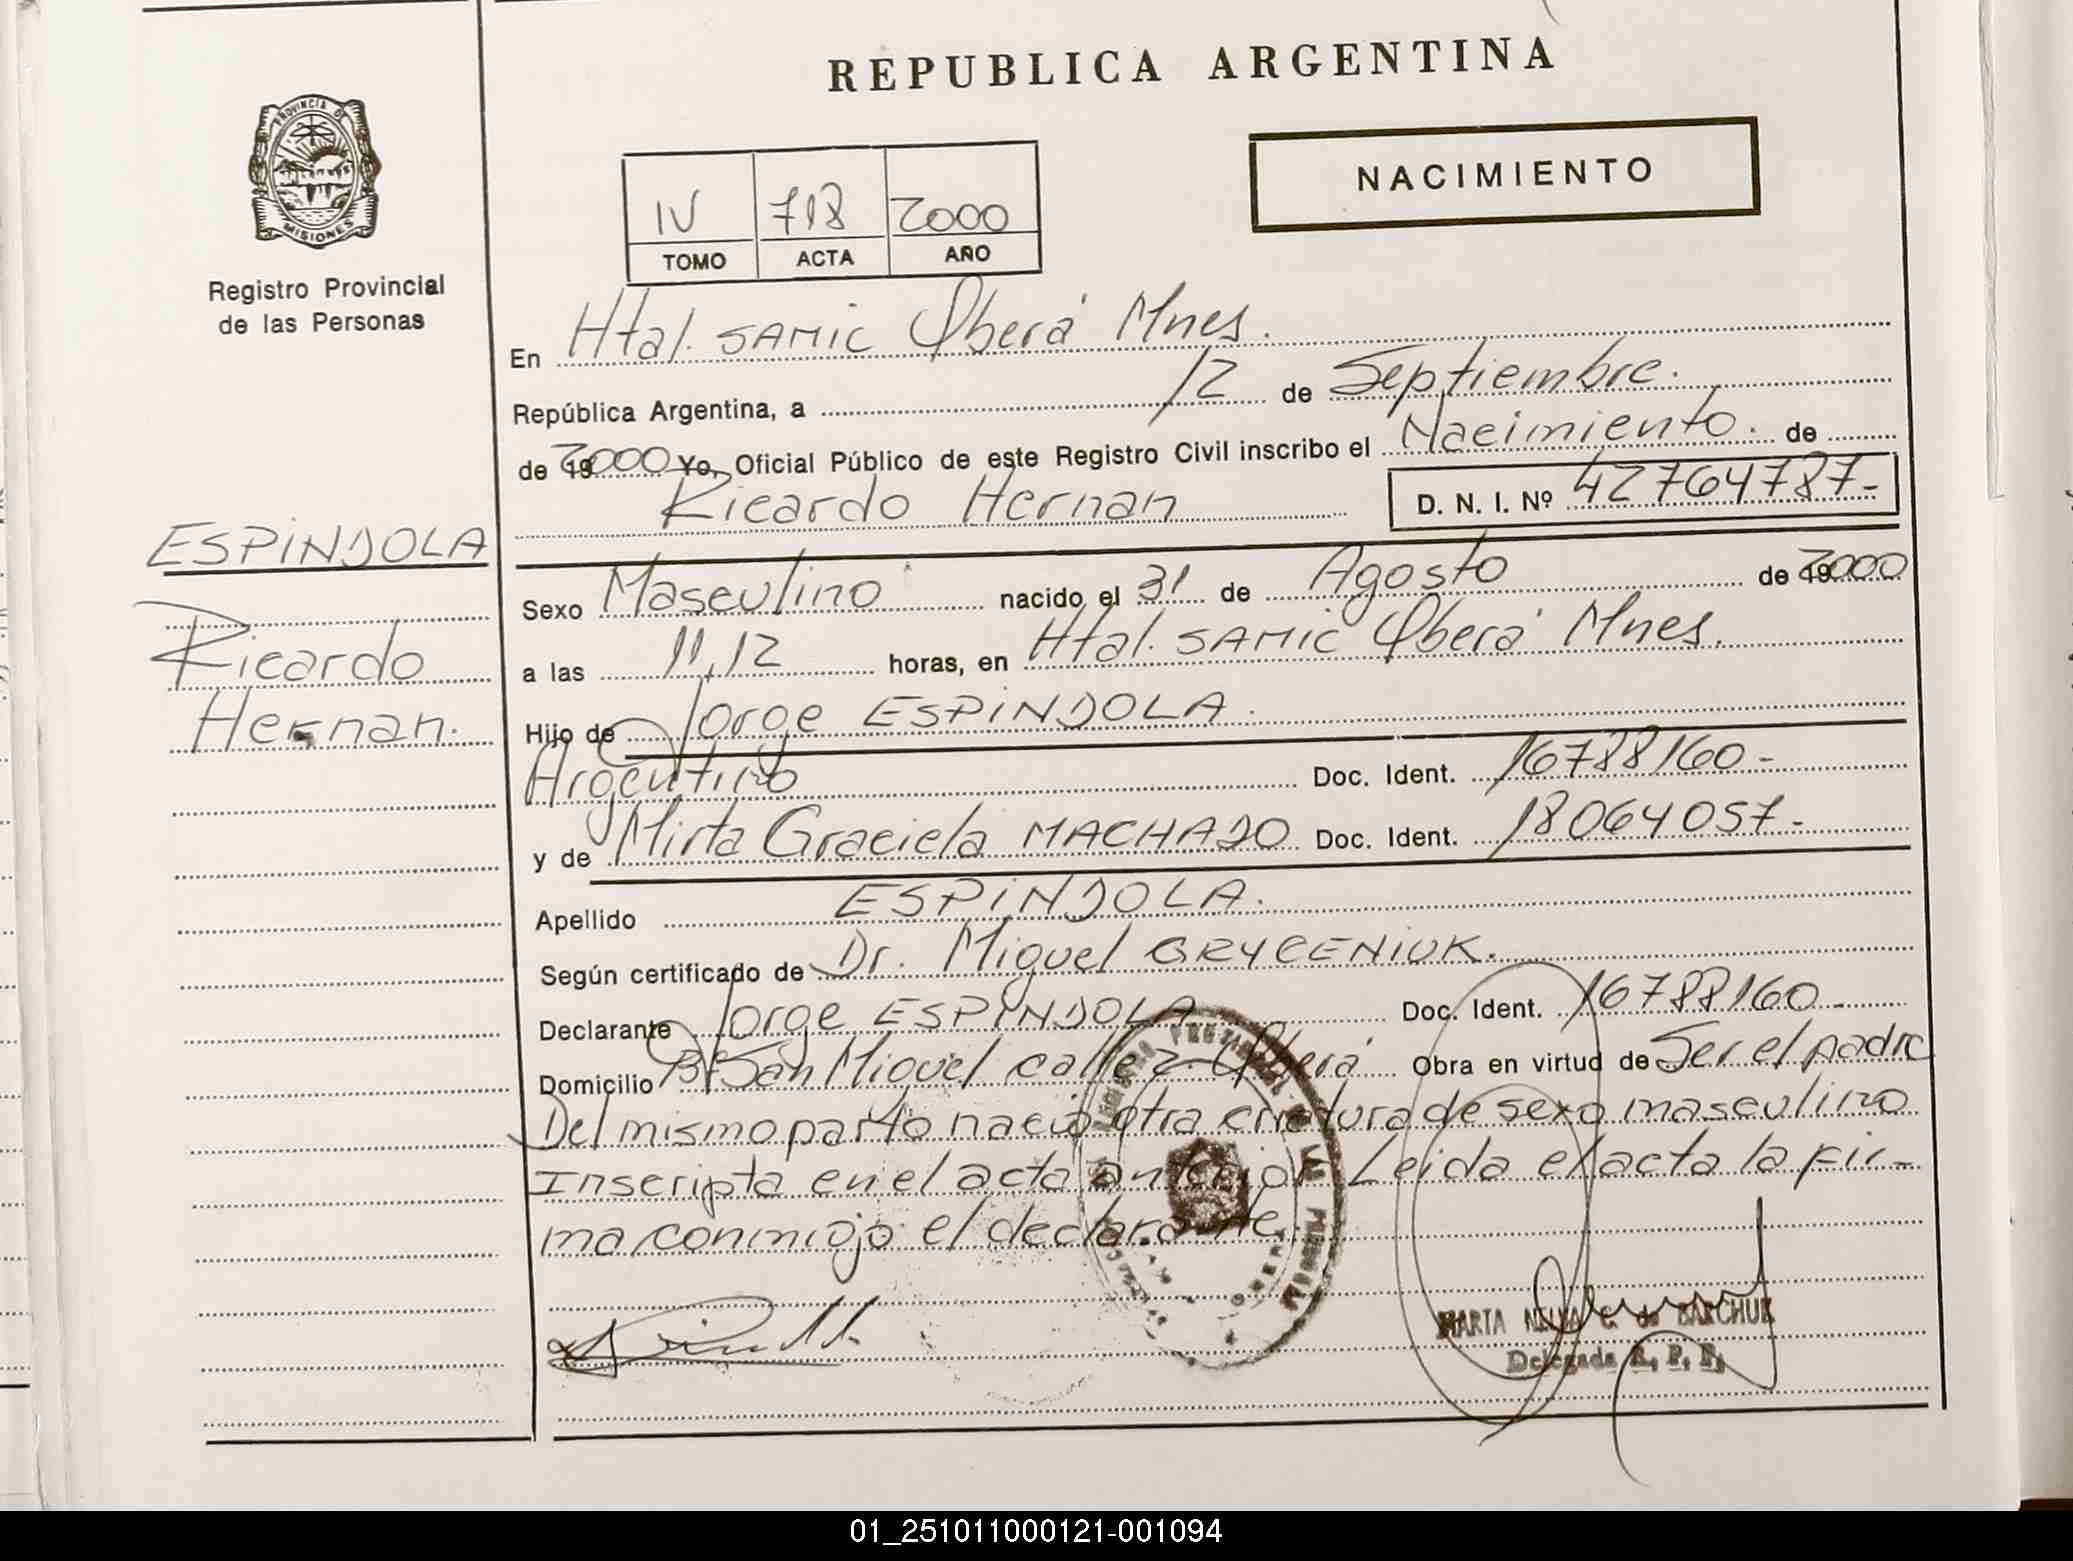 REPUBLICA ARGENTINA
PROVINCIA DE
MISIONES
Registro Provincial
de las Personas
NACIMIENTO
IV 718 2000
TOMO ACTA AÑO
En Htal. SAMIC Oberá Mnes.
República Argentina, a 12 de Septiembre.
de 2000 Yo, Oficial Público de este Registro Civil inscribo el Nacimiento. de
Ricardo Hernan D. N. I. Nº 42764787-
ESPINDOLA
Ricardo
Hernan.
Sexo Masculino nacido el 31 de Agosto de 2000
a las 11,12 horas, en Htal. SAMIC Oberá Mnes.
Hijo de Jorge ESPINDOLA.
Argentino Doc. Ident. 16788160-
y de Mirta Graciela MACHADO Doc. Ident. 18064057-
Apellido ESPINDOLA.
Según certificado de Dr. Miguel GRYCENIUK.
Declarante Jorge ESPINDOLA Doc. Ident. 16788160-
Domicilio Bº San Miguel calle 2 Oberá Obra en virtud de Ser el padre
Del mismo parto nació otra criatura de sexo masculino
Inscripta en el acta anterior Leida el acta la fir-
ma conmigo el declarante.
MARTA C. de BARCHUK
Delegada R. P. P.
01_251011000121-001094